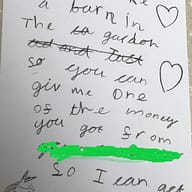 a barn in
The garden
so you can
giv me one
of the money
you got from
So I can get